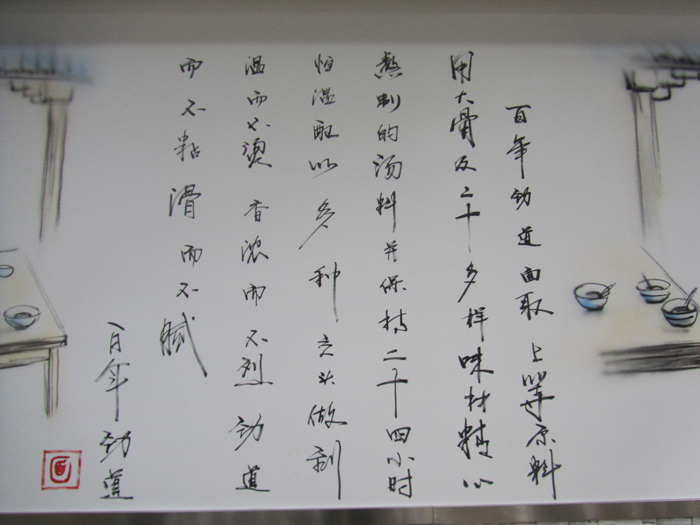 百年劲道面取上等原料
用大骨及二十多样味材精心
熬制的汤料并保持二十四小时
恒温配以多种头做到
温而不烫香浓而不烈劲道
而不粘滑而不腻
百年劲道